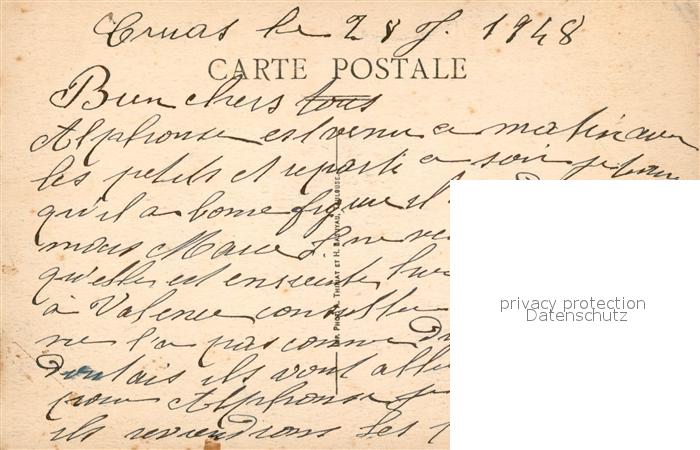 Cruas le 28 J. 1948
CARTE POSTALE
Bien chers tous
Alphonse est venu ce matin avec
les petits et reparti ce soir je trouve
qu'il a bonne figure il
nous Marie
qu'elle est enceinte
à Valence consulter
ne l'a pas
doutais ils vont aller
pour Alphonse
ils reviendrons les
Imp. Phot. A. Thiriat et H. Basuyau, Toulouse
privacy protection
Datenschutz